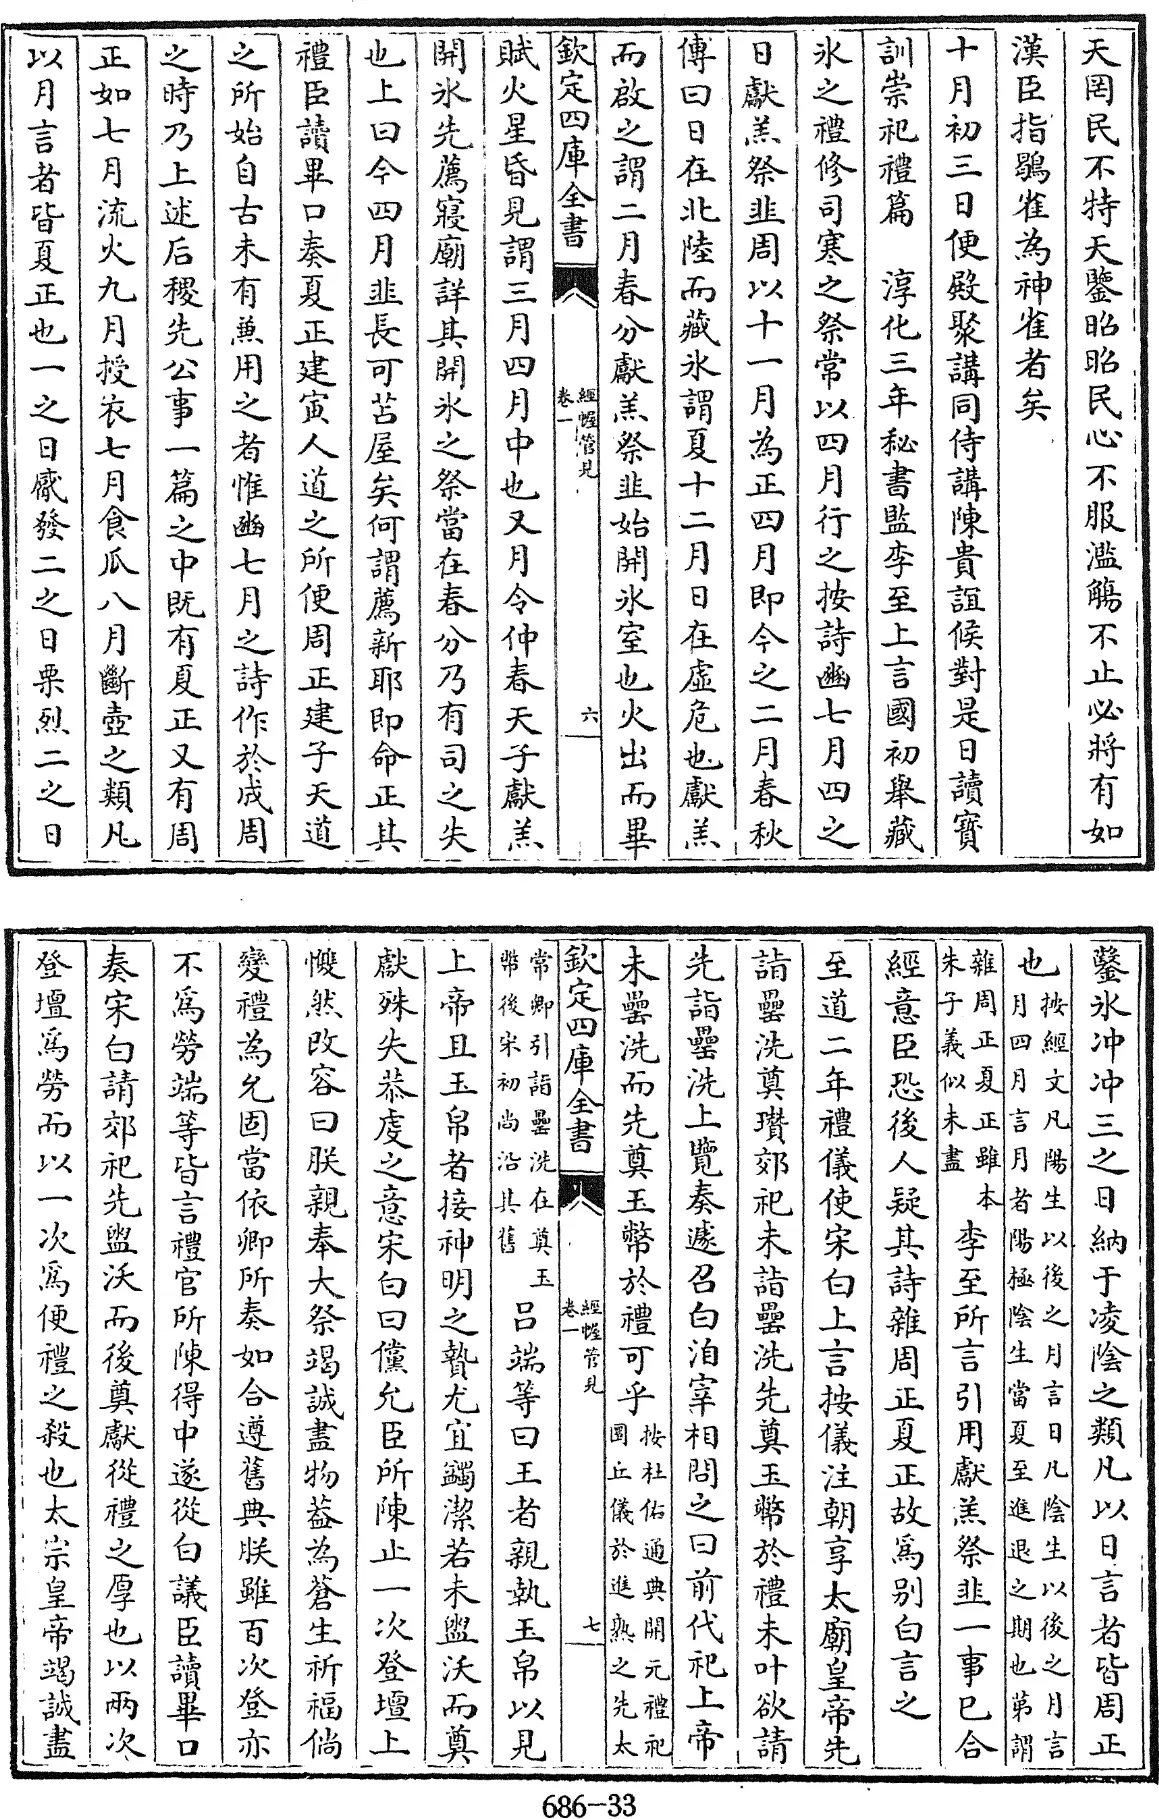 天罔民不特天鑒昭昭民心不服濫觴不止必將有如
漢臣指鶡雀為神雀者矣
十月初三日便殿聚講同侍講陳貴誼候對是日讀寳
訓崇祀禮篇　淳化三年秘書監李至上言國初舉藏
氷之禮修司寒之祭常以四月行之按詩豳七月四之
日獻羔祭韭周以十一月為正四月即今之二月春秋
傳曰日在北陸而藏氷謂夏十二月日在虛危也獻羔
而啟之謂二月春分獻羔祭韭始開氷室也火出而畢
欽定四庫全書
經幄管見
卷一
六
賦火星昏見謂三月四月中也又月令仲春天子獻羔
開氷先薦寢廟詳其開氷之祭當在春分乃有司之失
也上曰今四月韭長可苫屋矣何謂薦新耶即命正其
禮臣讀畢口奏夏正建寅人道之所便周正建子天道
之所始自古未有兼用之者惟豳七月之詩作於成周
之時乃上述后稷先公事一篇之中既有夏正又有周
正如七月流火九月授衣七月食瓜八月斷壺之類凡
以月言者皆夏正也一之日觱發二之日栗烈二之日
鑿氷冲冲三之日納于凌陰之類凡以日言者皆周正
也按經文凡陽生以後之月言日凡陰生以後之月言
月四月言月者陽極陰生當夏至進退之期也第謂
雜周正夏正雖本
朱子義似未盡
李至所言引用獻羔祭韭一事已合
經意臣恐後人疑其詩雜周正夏正故為别白言之
至道二年禮儀使宋白上言按儀注朝享太廟皇帝先
詣罍洗奠瓚郊祀未詣罍洗先奠玉幣於禮未叶欲請
先詣罍洗上覽奏遽召白洎宰相問之曰前代祀上帝
未罍洗而先奠玉幣於禮可乎按杜佑通典開元禮祀
圜丘儀於進熟之先太
欽定四庫全書
經幄管見
卷一
七
常卿引詣罍洗在奠玉
幣後宋初尚沿其舊
吕端等曰王者親執玉帛以見
上帝且玉帛者接神明之贄尤宜蠲潔若未盥沃而奠
獻殊失恭虔之意宋白曰儻允臣所陳止一次登壇上
愯然改容曰朕親奉大祭竭誠盡物葢為蒼生祈福倘
變禮為允固當依卿所奏如合遵舊典朕雖百次登亦
不為勞端等皆言禮官所陳得中遂從白議臣讀畢口
奏宋白請郊祀先盥沃而後奠獻從禮之厚也以兩次
登壇為勞而以一次為便禮之殺也太宗皇帝竭誠盡
686-33